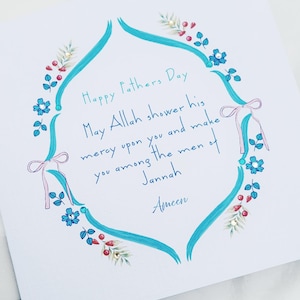 Happy Fathers Day
May Allah shower his
mercy upon you and make
you among the men of
Jannah
Ameen